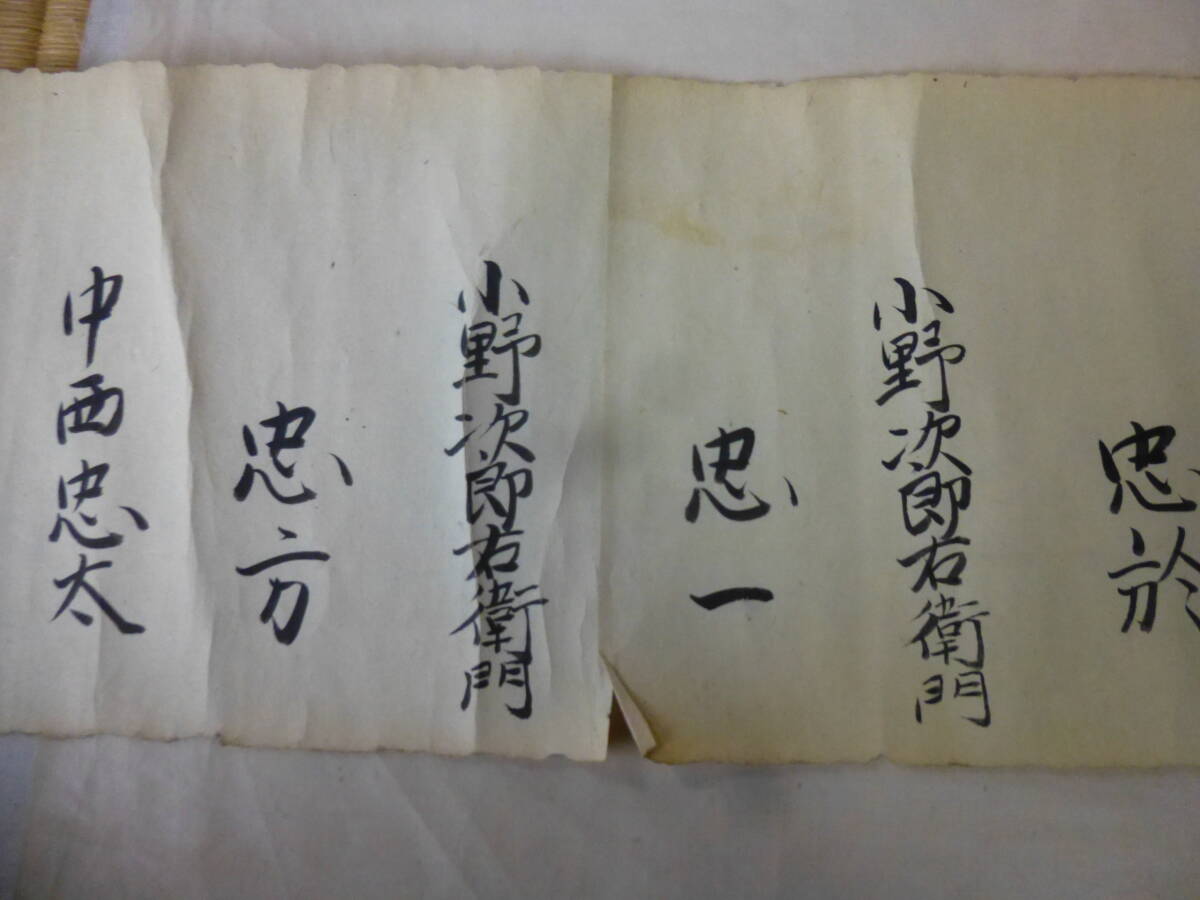 忠於
小野次郎右衛門
忠一
小野次郎右衛門
忠方
中西忠太